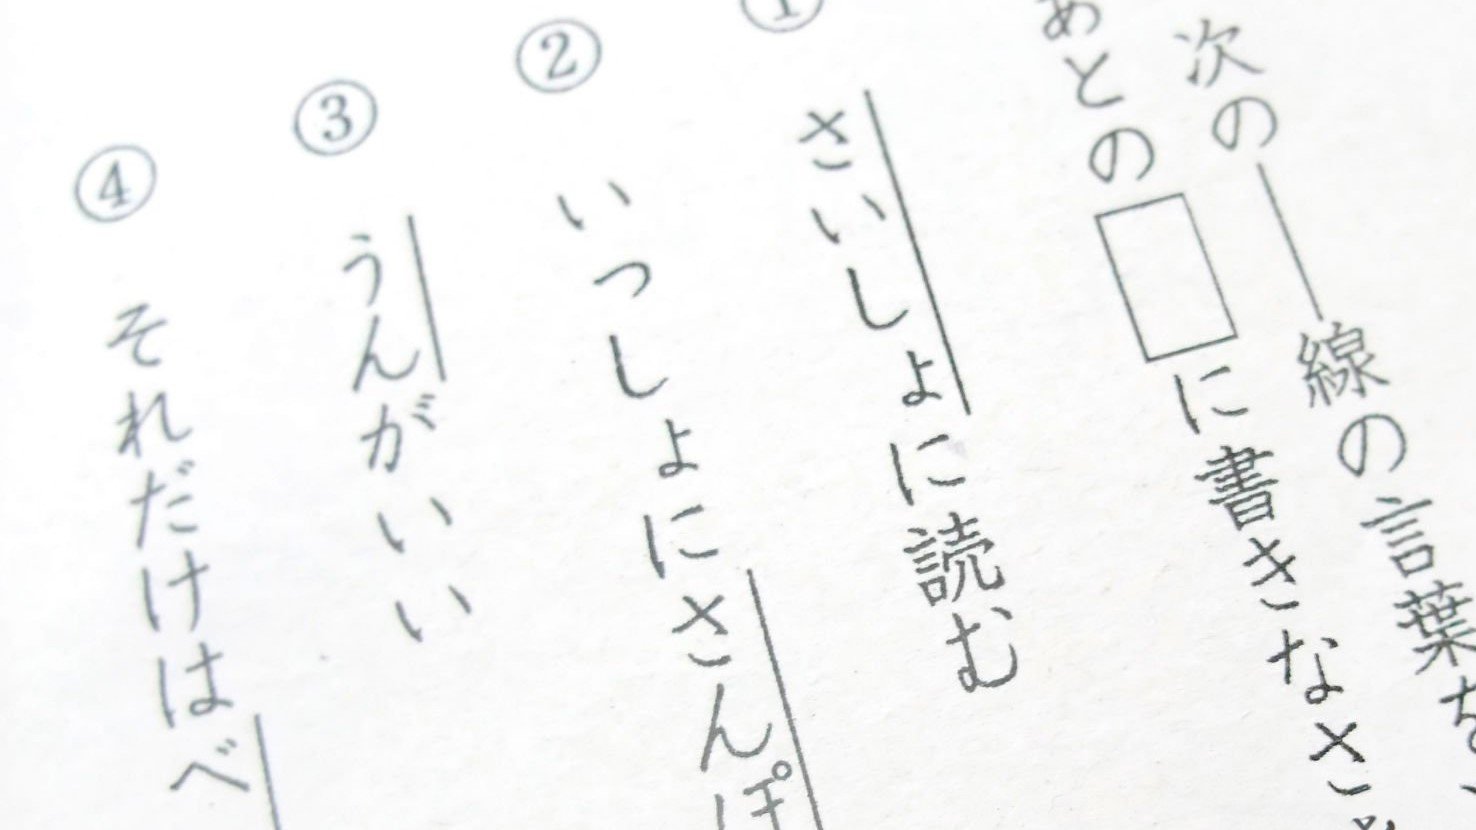 次の――線の言葉を、
あとの□に書きなさ
① さいしょに読む
② いっしょにさんぽ
③ うんがいい
④ それだけはべ